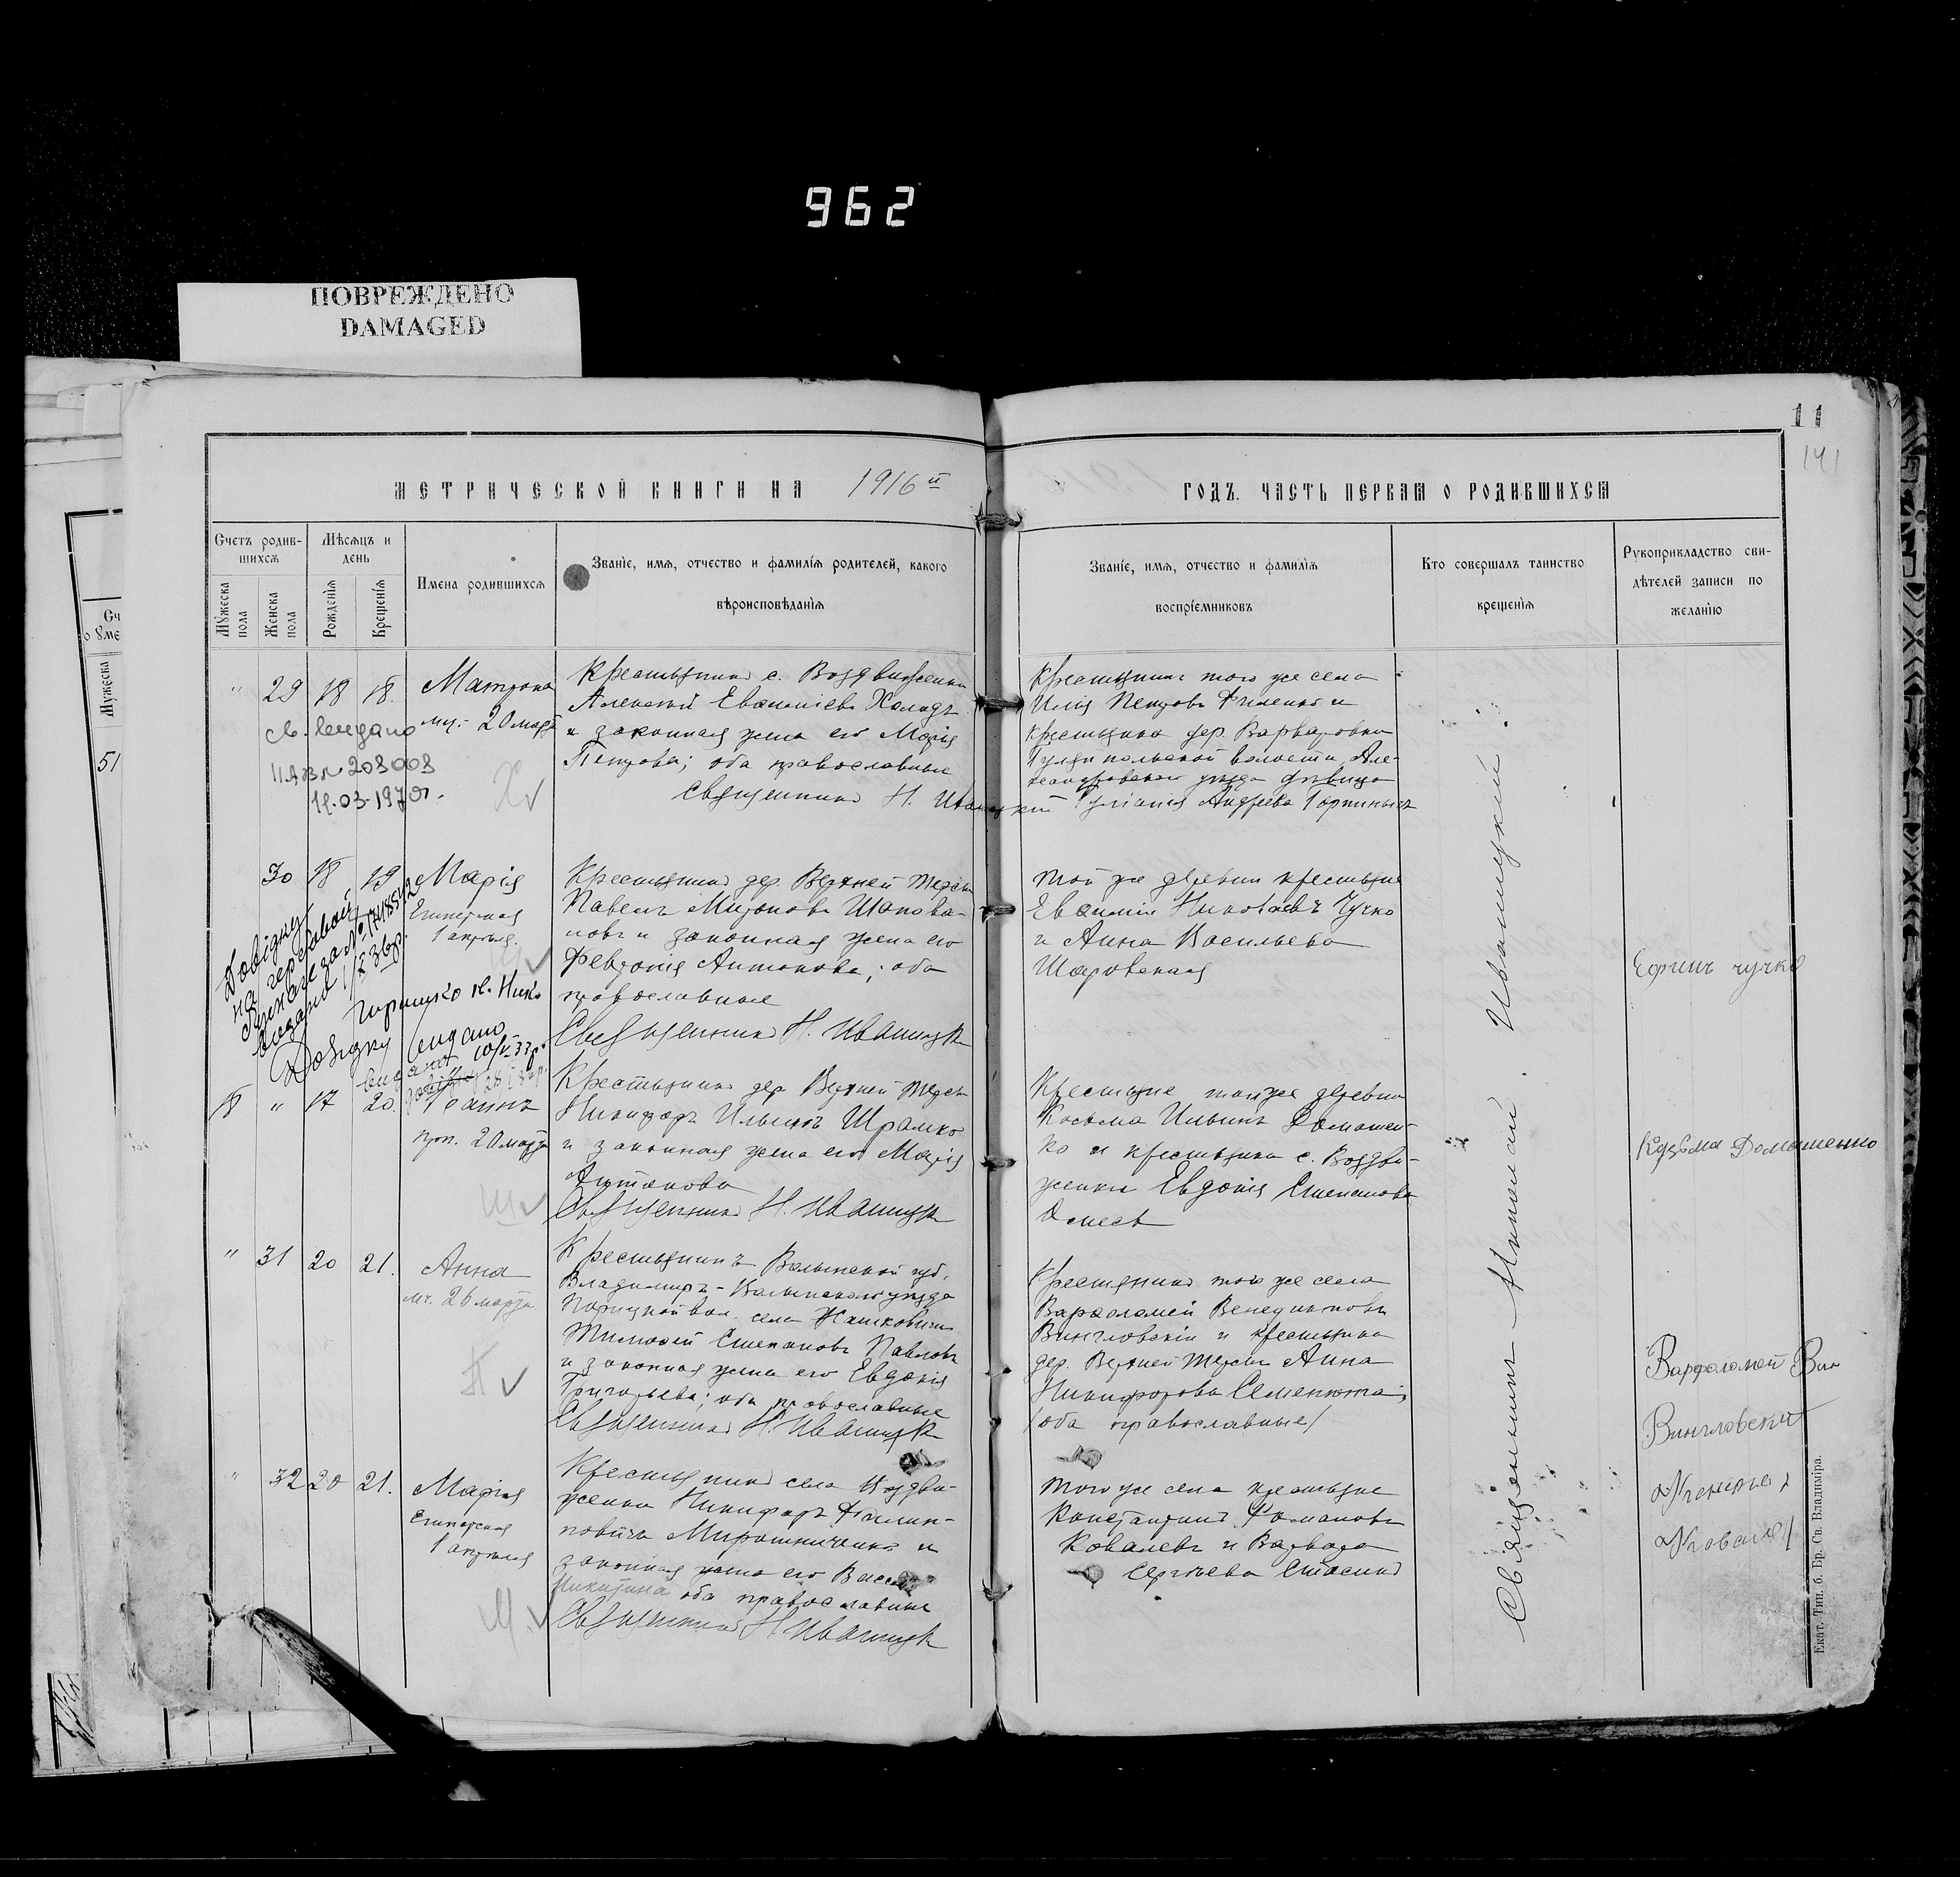 962
ПОВРЕЖДЕНО
DAMAGED
11
141
МЕТРИЧЕСКОЙ КНИГИ НА 1916й
ГОДЪ. ЧАСТЬ ПЕРВАЯ О РОДИВШИХСЯ
Счетъ родив-
шихся
Мужеска
пола
Женска
пола
Мѣсяцъ и
день
Рожденія
Крещенія
Имена родившихся
Званіе, имя, отчество и фамилія родителей, какого
вѣроисповѣданія
Званіе, имя, отчество и фамилія
воспріемниковъ
Кто совершалъ таинство
крещенія
Рукоприкладство сви-
дѣтелей записи по
желанію
Мужеска
51
" 29 18 18.
Матрона
муч. 20 марта
св. видано
203003
Крестьянинъ с. Воздвиженки
Алексѣй Евфиміевъ Халидъ
и законная жена его Марія
Петрова; оба православные
Священникъ Н. Иваницкій
Крестьянинъ того же села
Илія Петровъ и
крестьянка дер. Варваровки
Гуляйпольской волости, Але-
ксандровскаго уѣзда дѣвица
Андреева
30 18 19
Марія
Египетская
1 апрѣля.
Крестьянинъ дер. Верхней Терсы
Павелъ Мироновъ Шапова-
ловъ и законная жена его
Февронія Антонова; оба
православные
Священникъ Н. Иваницкій
Той же деревни крестьяне
Евфимій Николаевъ Чучко
и Анна Васильева
Шаровская
Ефимъ Чучко
Довідку
видано
Довідку видано
18 " 17 20.
Іоаннъ
прп. 20 марта
Крестьянинъ дер Верхней Терсы
Никифоръ Ильинъ Шрамко
и законная жена его Марія
Антонова
Священникъ Н. Иваницкій
Крестьяне той же деревни
Косьма Ильинъ Домашен-
ко и крестьянка с. Воздви-
женки Евдокія Степанова
Кузьма Домашенко
" 31 20 21.
Анна
мч. 26 марта
Крестьянинъ Волынской губ.
Владимиръ-Волынскаго уѣзда
Порицкой вол. села
Тимофей Степановъ Павловъ
и законная жена его Евдокія
Григорьева; оба православные
Священникъ Н. Иваницкій
Крестьянинъ того же села
Варфоломей Венедиктовъ
Вингловскій и крестьянка
дер. Верхней Терсы Анна
Никифорова Семенюта;
/оба православные/
Варфоломей Вин
Вингловскій
" 32 20 21.
Марія
Египетская
1 апрѣля
Крестьянинъ села Воздви-
женки Никифоръ
Мирошниченко и
законная жена его
Никитина оба православные
Священникъ Н. Иваницкій
Того же села крестьяне
Константинъ Романовъ
Ковалевъ и Варвара
Сергѣева
Священникъ Николай Иваницкій.
Екат. Тип. б. Бр. Св. Владиміра.